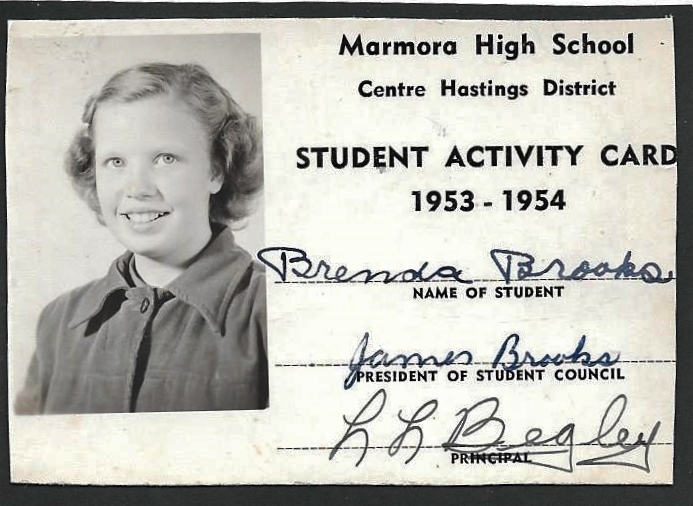 Marmora High School
Centre Hastings District
STUDENT ACTIVITY CARD
1953 - 1954
Brenda Brooks
NAME OF STUDENT
James Brooks
PRESIDENT OF STUDENT COUNCIL
L L Begley
PRINCIPAL